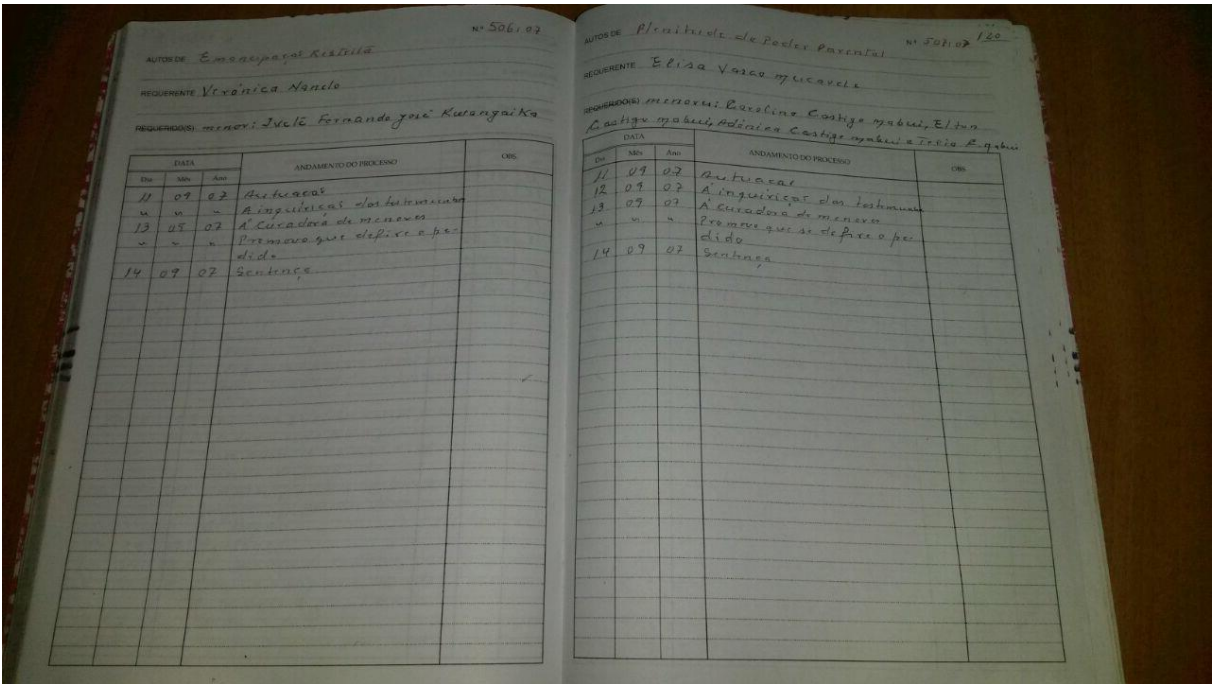 Nº 506/07
AUTOS DE Emancipaçaõ Restrita
REQUERENTE Verónica Nanelo
REQUERIDO(S) menor: Ivete Fernando José Kulangaika
DATA ANDAMENTO DO PROCESSO OBS.
Dia Mês Ano
11 09 07 Autuaçaõ
" " " A inquiriçaõ das testemunhas
13 09 07 À Curadora de menores
" " " Promove que defire o pe-
dido
14 09 07 Sentença
120
AUTOS DE Plenitude de Poder Parental Nº 507/07
REQUERENTE Elisa Vasco Mucavele
REQUERIDO(S) menores: Carolina Castigo mabui, Elton
Castigo mabui, Adónica Castigo mabui e C. mabui
DATA ANDAMENTO DO PROCESSO OBS.
Dia Mês Ano
11 09 07 Autuaçaõ
12 09 07 À inquiriçaõ das testemunhas
13 09 07 À Curadora de menores
" " " Promove que se defire o pe-
dido
14 09 07 Sentença